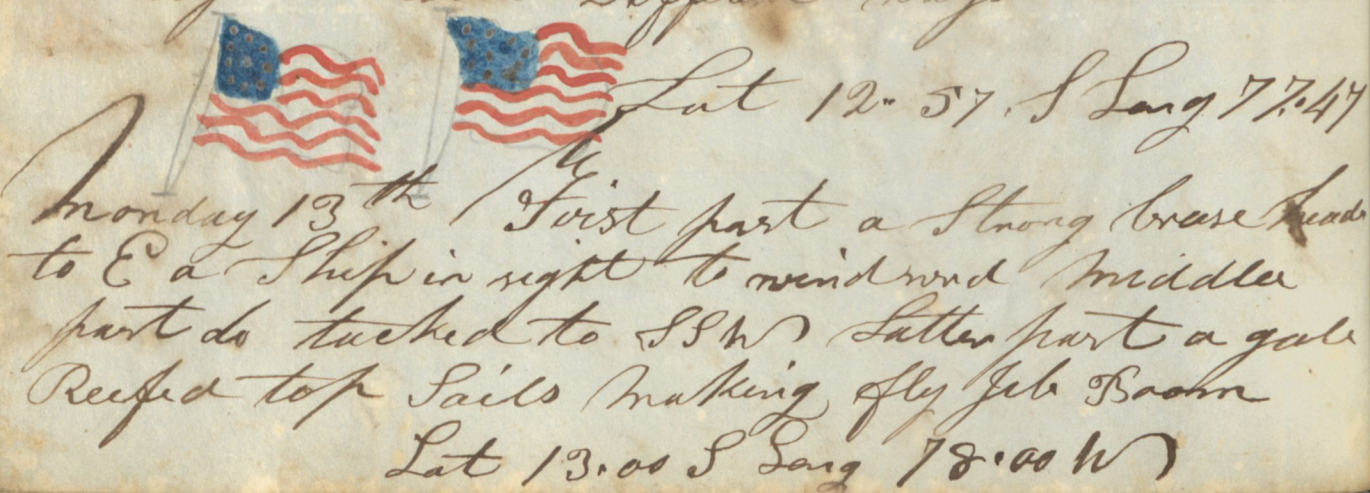 Different
Lat 12" 57. S Long 77.47
Monday 13th First part a Strong brese heads
to E a Ship in sight to windwrd Middle
part do tacked to SSW Latter part a gale
Reefed top Sails Making fly Jib Boom
Lat 13.00 S Long 78.00 W